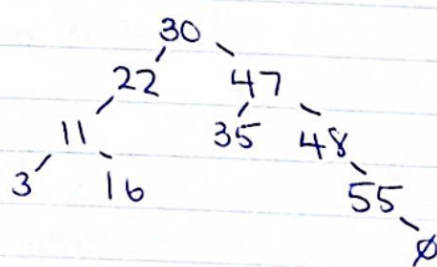 30
22 47
11 35 48
3 16 55
ø